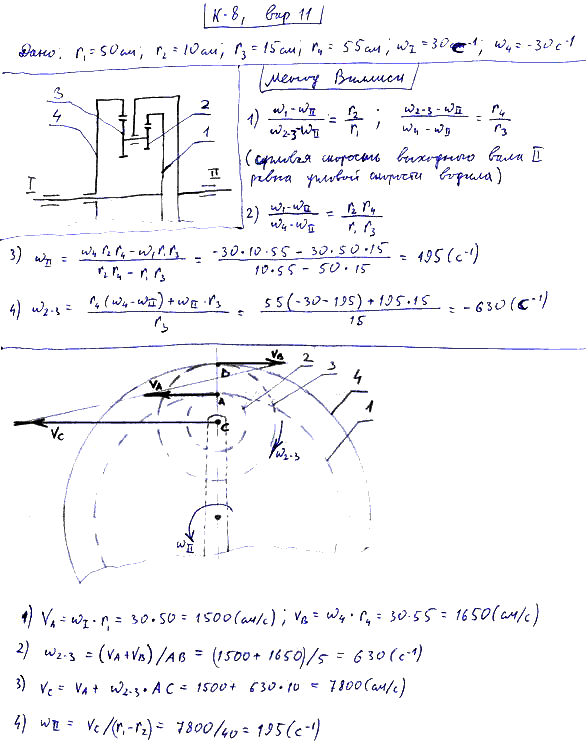 К-8, вар 11
Дано: r₁ = 50 см; r₂ = 10 см; r₃ = 15 см; r₄ = 55 см; ω_I = 30 с⁻¹; ω₄ = -30 с⁻¹
Метод Виллиса
3
4
2
1
I
II
1) (ω₁ - ω_II)/(ω₂₋₃ - ω_II) = r₂/r₁ ; (ω₂₋₃ - ω_II)/(ω₄ - ω_II) = r₄/r₃
(угловая скорость выходного вала II
равна угловой скорости водила)
2) (ω₁ - ω_II)/(ω₄ - ω_II) = r₂ r₄/r₁ r₃
3) ω_II = (ω₄ r₂ r₄ - ω₁ r₁ r₃)/(r₂ r₄ - r₁ r₃) = (-30·10·55 - 30·50·15)/(10·55 - 50·15) = 195 (с⁻¹)
4) ω₂₋₃ = (r₄(ω₄ - ω_II) + ω_II · r₃)/r₃ = (55(-30-195) + 195·15)/15 = -630 (с⁻¹)
V_B
B
2
3
4
V_A
A
1
V_C
C
ω₂₋₃
ω_II
1) V_A = ω_I · r₁ = 30·50 = 1500 (см/с) ; V_B = ω₄ · r₄ = 30·55 = 1650 (см/с)
2) ω₂₋₃ = (V_A + V_B)/AB = (1500 + 1650)/5 = 630 (с⁻¹)
3) V_C = V_A + ω₂₋₃ · AC = 1500 + 630·10 = 7800 (см/с)
4) ω_II = V_C/(r₁ - r₂) = 7800/40 = 195 (с⁻¹)